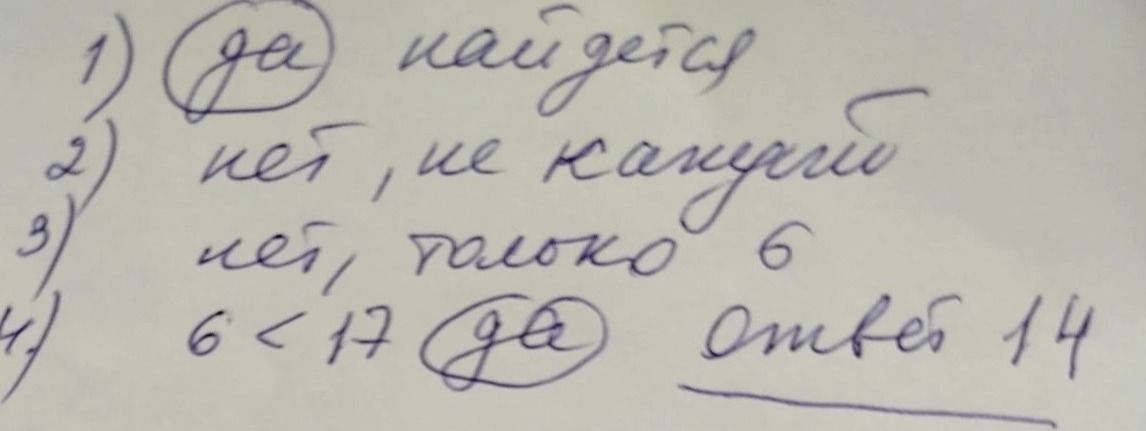 1) да найдется
2) нет, не каждый
3) нет, только 6
4) 6 < 17 да Ответ 14